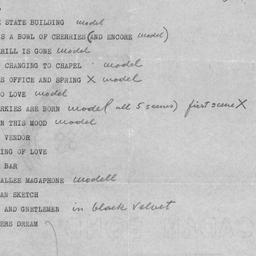 E STATE BUILDING model
S A BOWL OF CHERRIES (AND ENCORE model)
RILL IS GONE model
CHANGING TO CHAPEL model
S OFFICE AND SPRING X model
O LOVE model
RKIES ARE BORN model (all 5 scenes) first scene X
N THIS MOOD model
VENDOR
ING OF LOVE
BAR
ALLEE MAGAPHONE modell
AN SKETCH
AND GNETLEMEN in black velvet
ERS DREAM